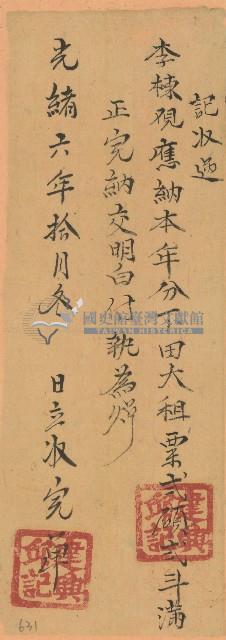 記收過
李棟观應納本年分水田大租粟弍碩弍斗滿
正完納交明白付執為炤
光緒六年拾月冬 日立收完單
建興
邱記
國史館臺灣文獻館
TAIWAN HISTORICA
631